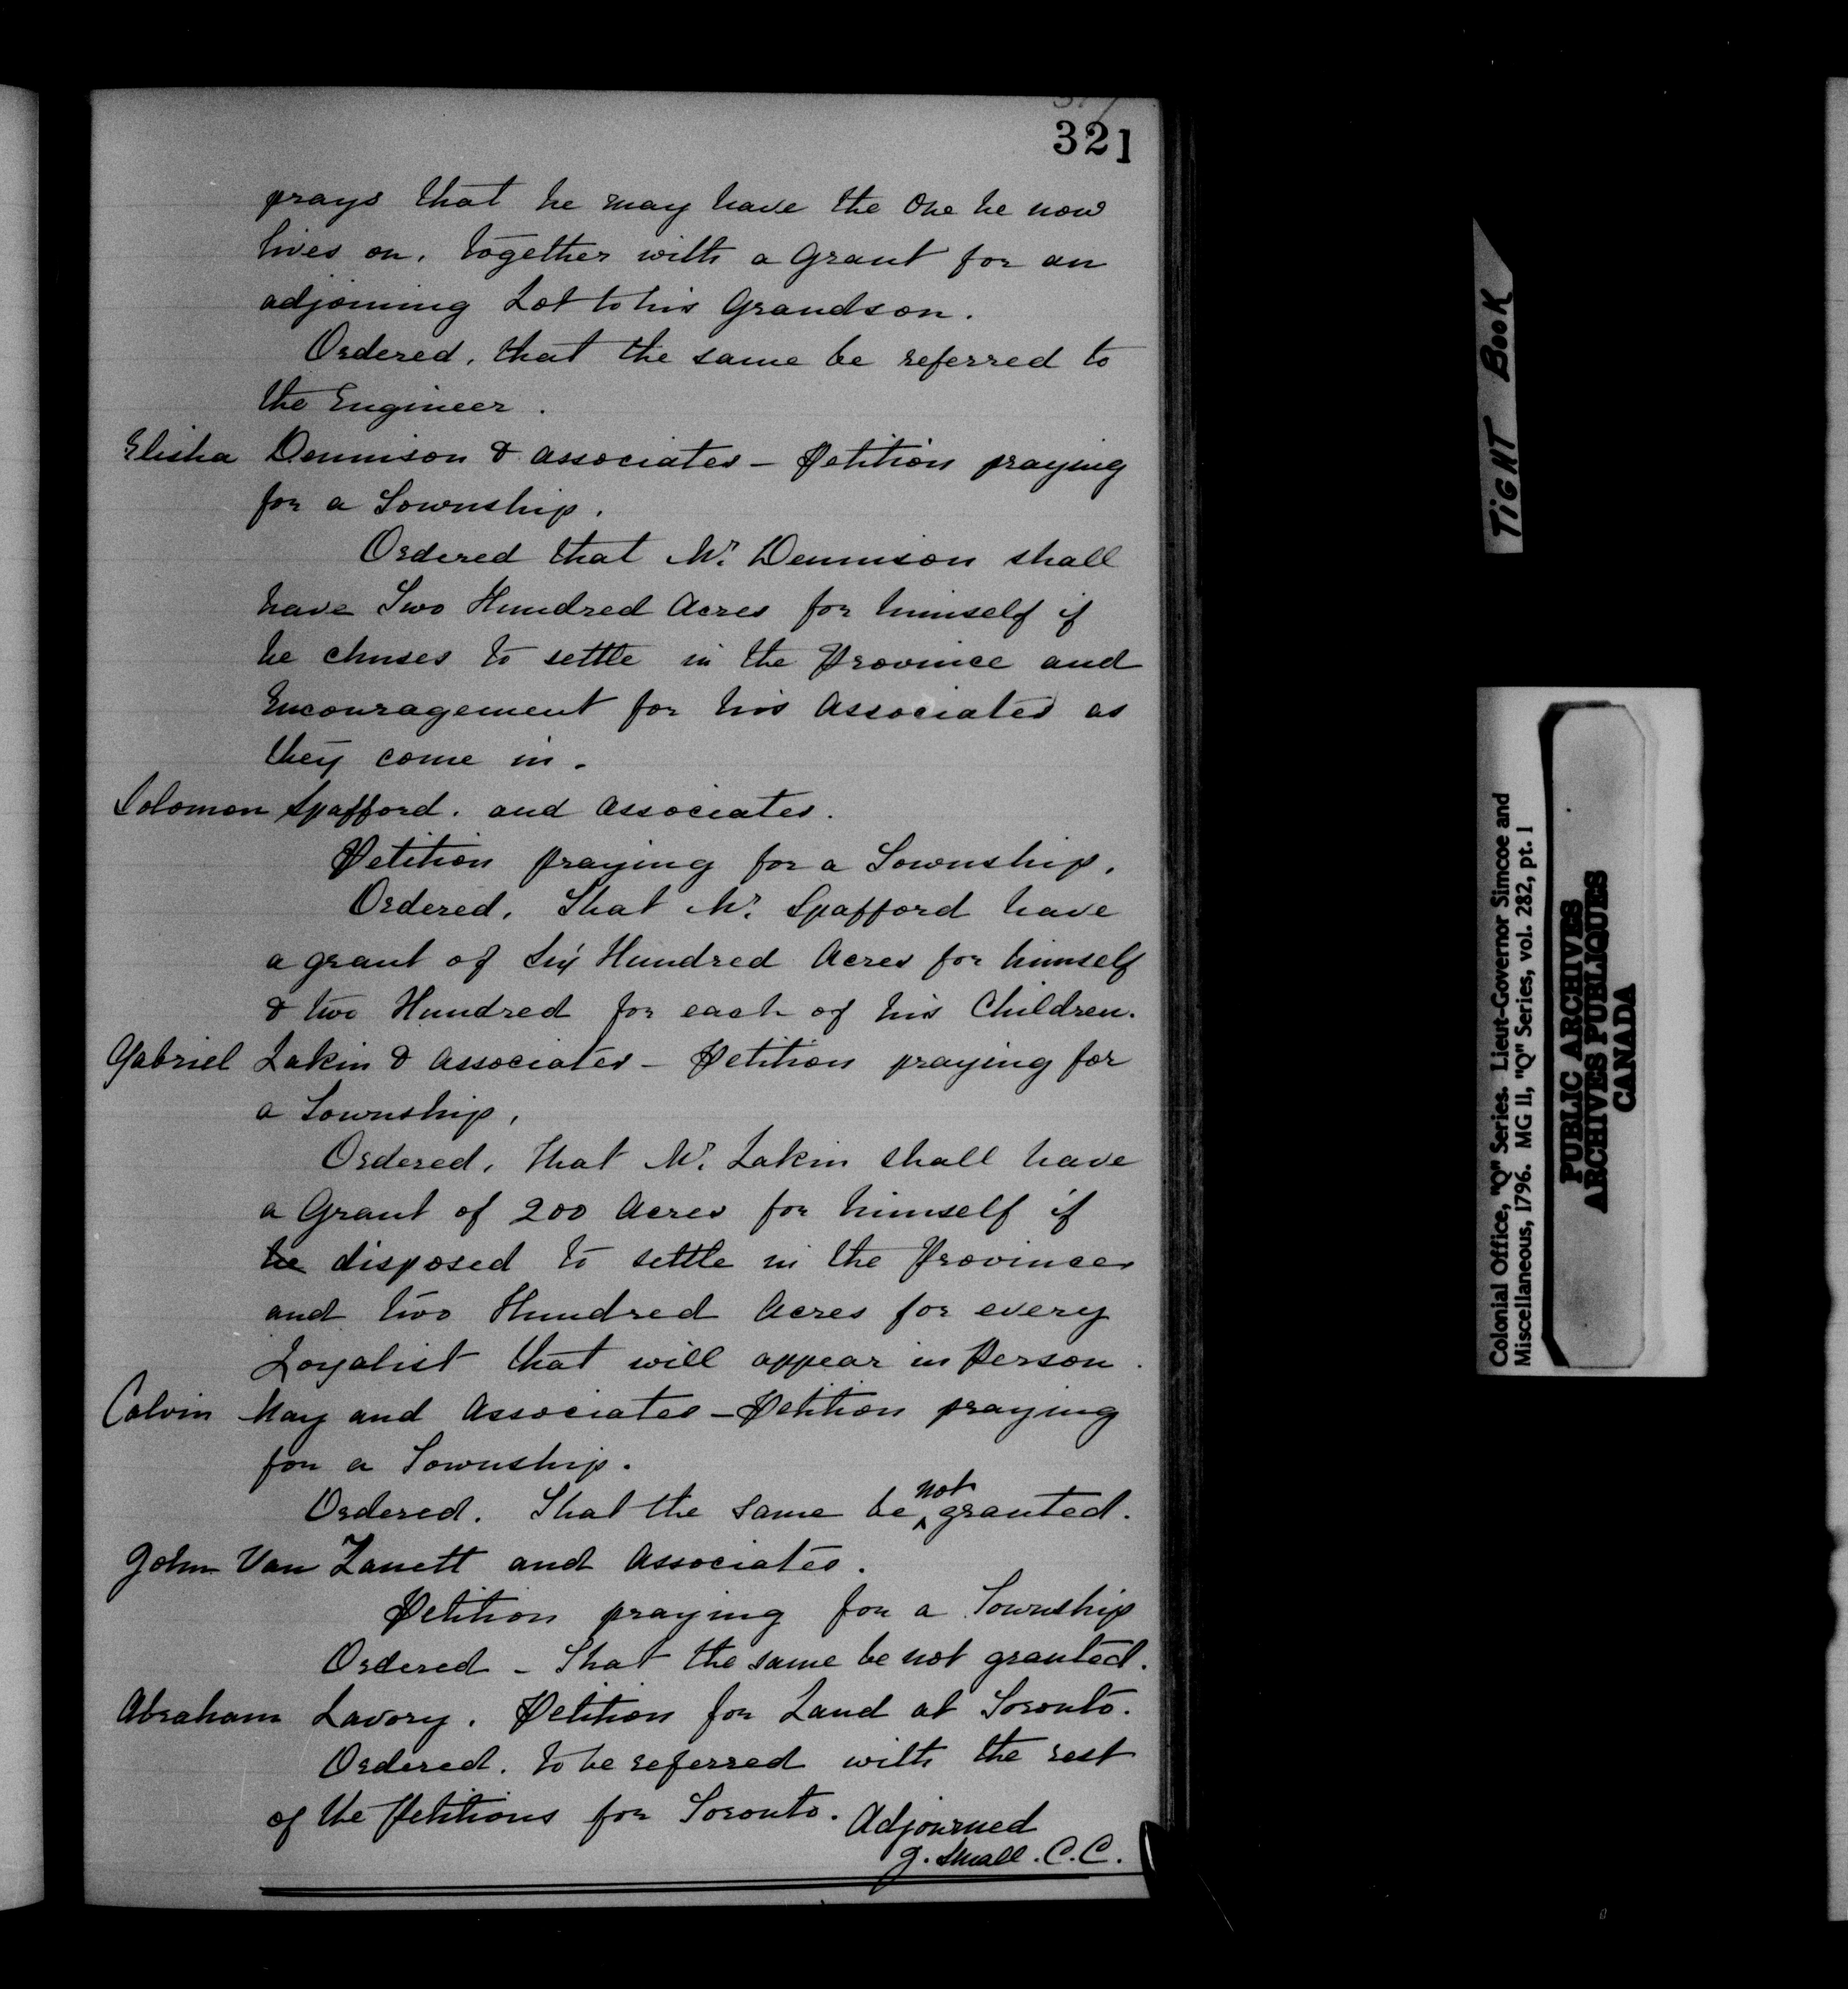 321
prays that he may have the One he now
lives on, together with a Grant for an
adjoining Lot to his Grandson.
Ordered, that the same be referred to
the Engineer.
Elisha Dennison & Associates - Petition praying
for a Township.
Ordered that Mr. Dennison shall
have Two Hundred Acres for himself if
he chuses to settle in the Province and
Encouragement for his Associates as
they come in.
Solomon Spafford. and Associates.
Petition praying for a Township.
Ordered, That Mr. Spafford have
a grant of Six Hundred Acres for himself
& two Hundred for each of his Children.
Gabriel Lakin & Associates - Petition praying for
a Township.
Ordered, that Mr. Lakin shall have
a Grant of 200 Acres for himself if
he disposed to settle in the Province
and two Hundred Acres for every
Loyalist that will appear in Person.
Calvin May and Associates - Petition praying
for a Township.
Ordered. That the same be not granted.
John Van Zanett and Associates.
Petition praying for a Township
Ordered - That the same be not granted.
Abraham Lavory. Petition for Land at Toronto.
Ordered. to be referred with the rest
of the Petitions for Toronto. Adjourned
J. Small. C.C.
TiGHT BooK
Colonial Office, "Q" Series. Lieut-Governor Simcoe and
Miscellaneous, 1796. MG 11, "Q" Series, vol. 282, pt. 1
PUBLIC ARCHIVES
ARCHIVES PUBLIQUES
CANADA